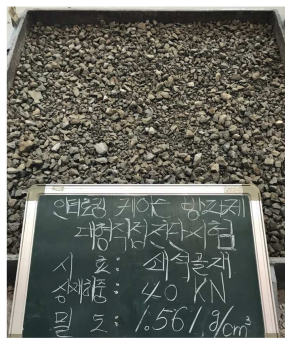 인터로킹 케이슨 방파제
대형직접전단시험
시 료 : 쇄석골재
상재하중 : 40 KN
밀 도 : 1.561 g/cm³